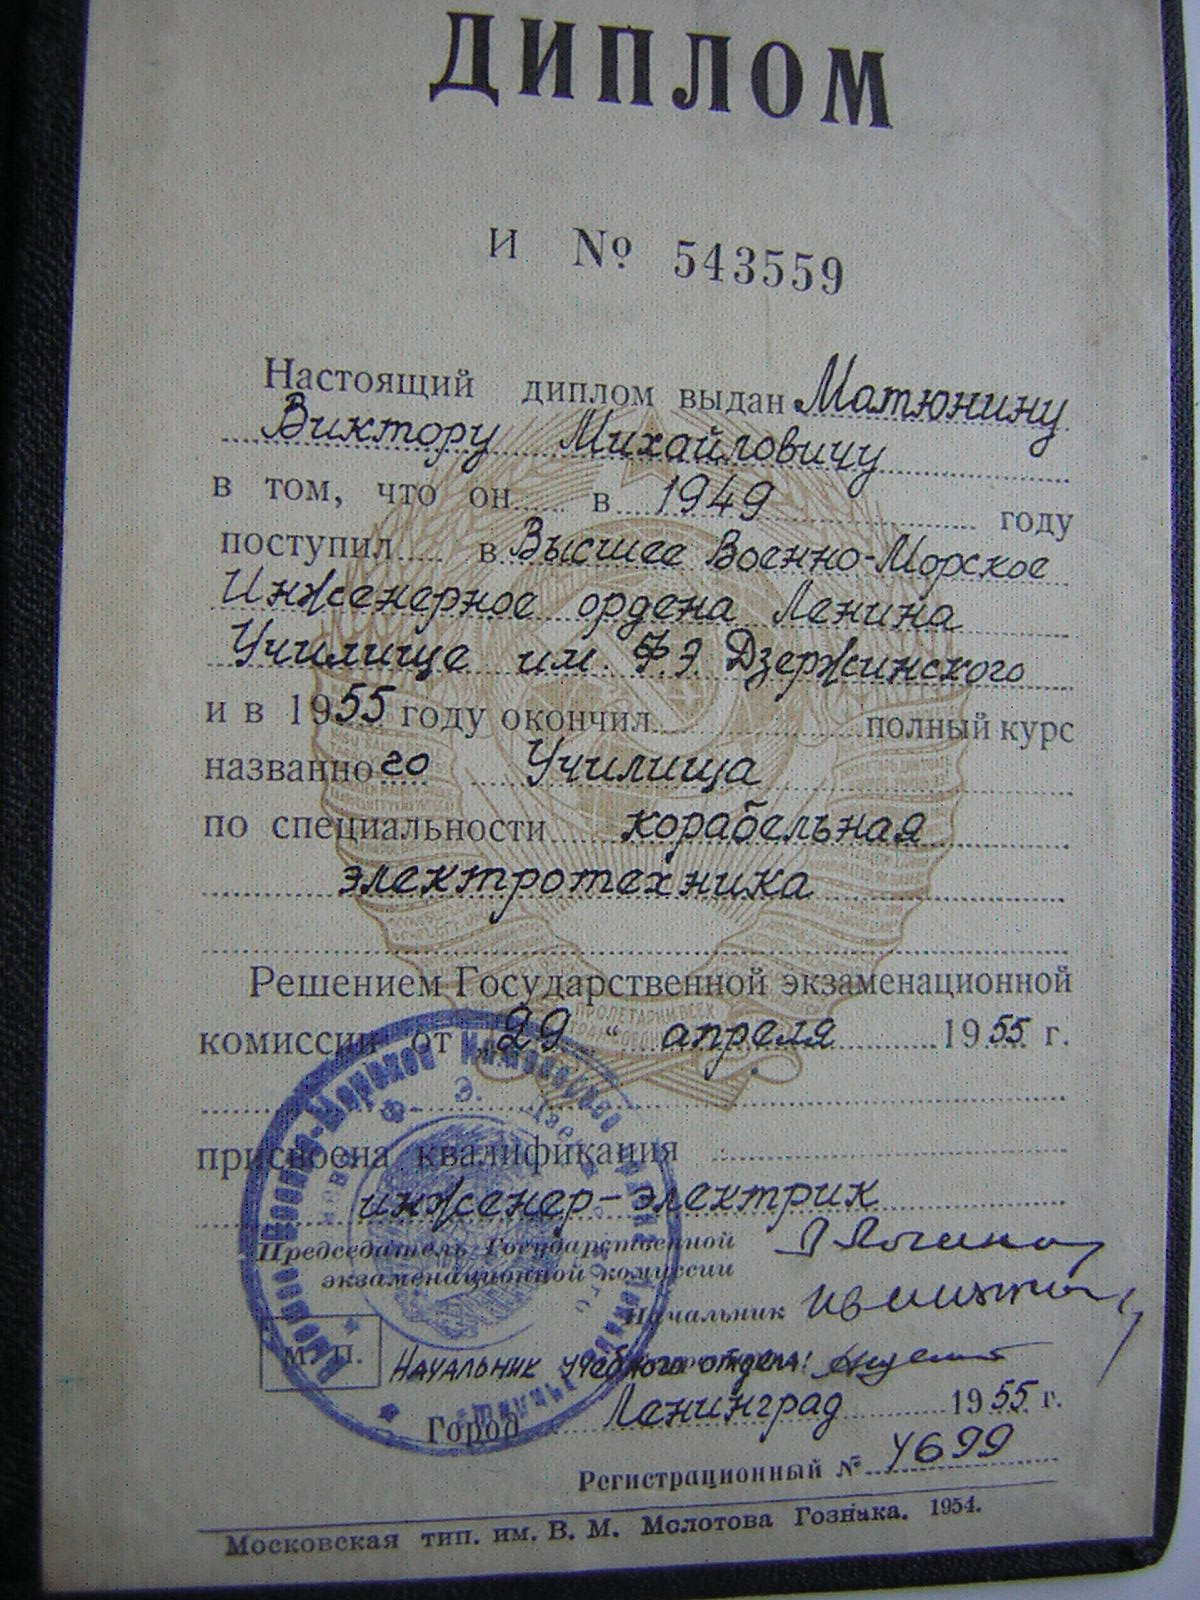 ДИПЛОМ
И № 543559
Настоящий диплом выдан Матюнину
Виктору Михайловичу
в том, что он в 1949 году
поступил в Высшее Военно-Морское
Инженерное ордена Ленина
Училище им. Ф.Э. Дзержинского
и в 1955 году окончил полный курс
названного Училища
по специальности корабельная
электротехника
Решением Государственной экзаменационной
комиссии от „29“ апреля 1955 г.
присвоена квалификация
инженер-электрик
Председатель Государственной
экзаменационной комиссии
Начальник
М. П.
Начальник учебного отдела:
Город Ленинград 1955 г.
Регистрационный № 4699
Московская тип. им. В. М. Молотова Гознака. 1954.